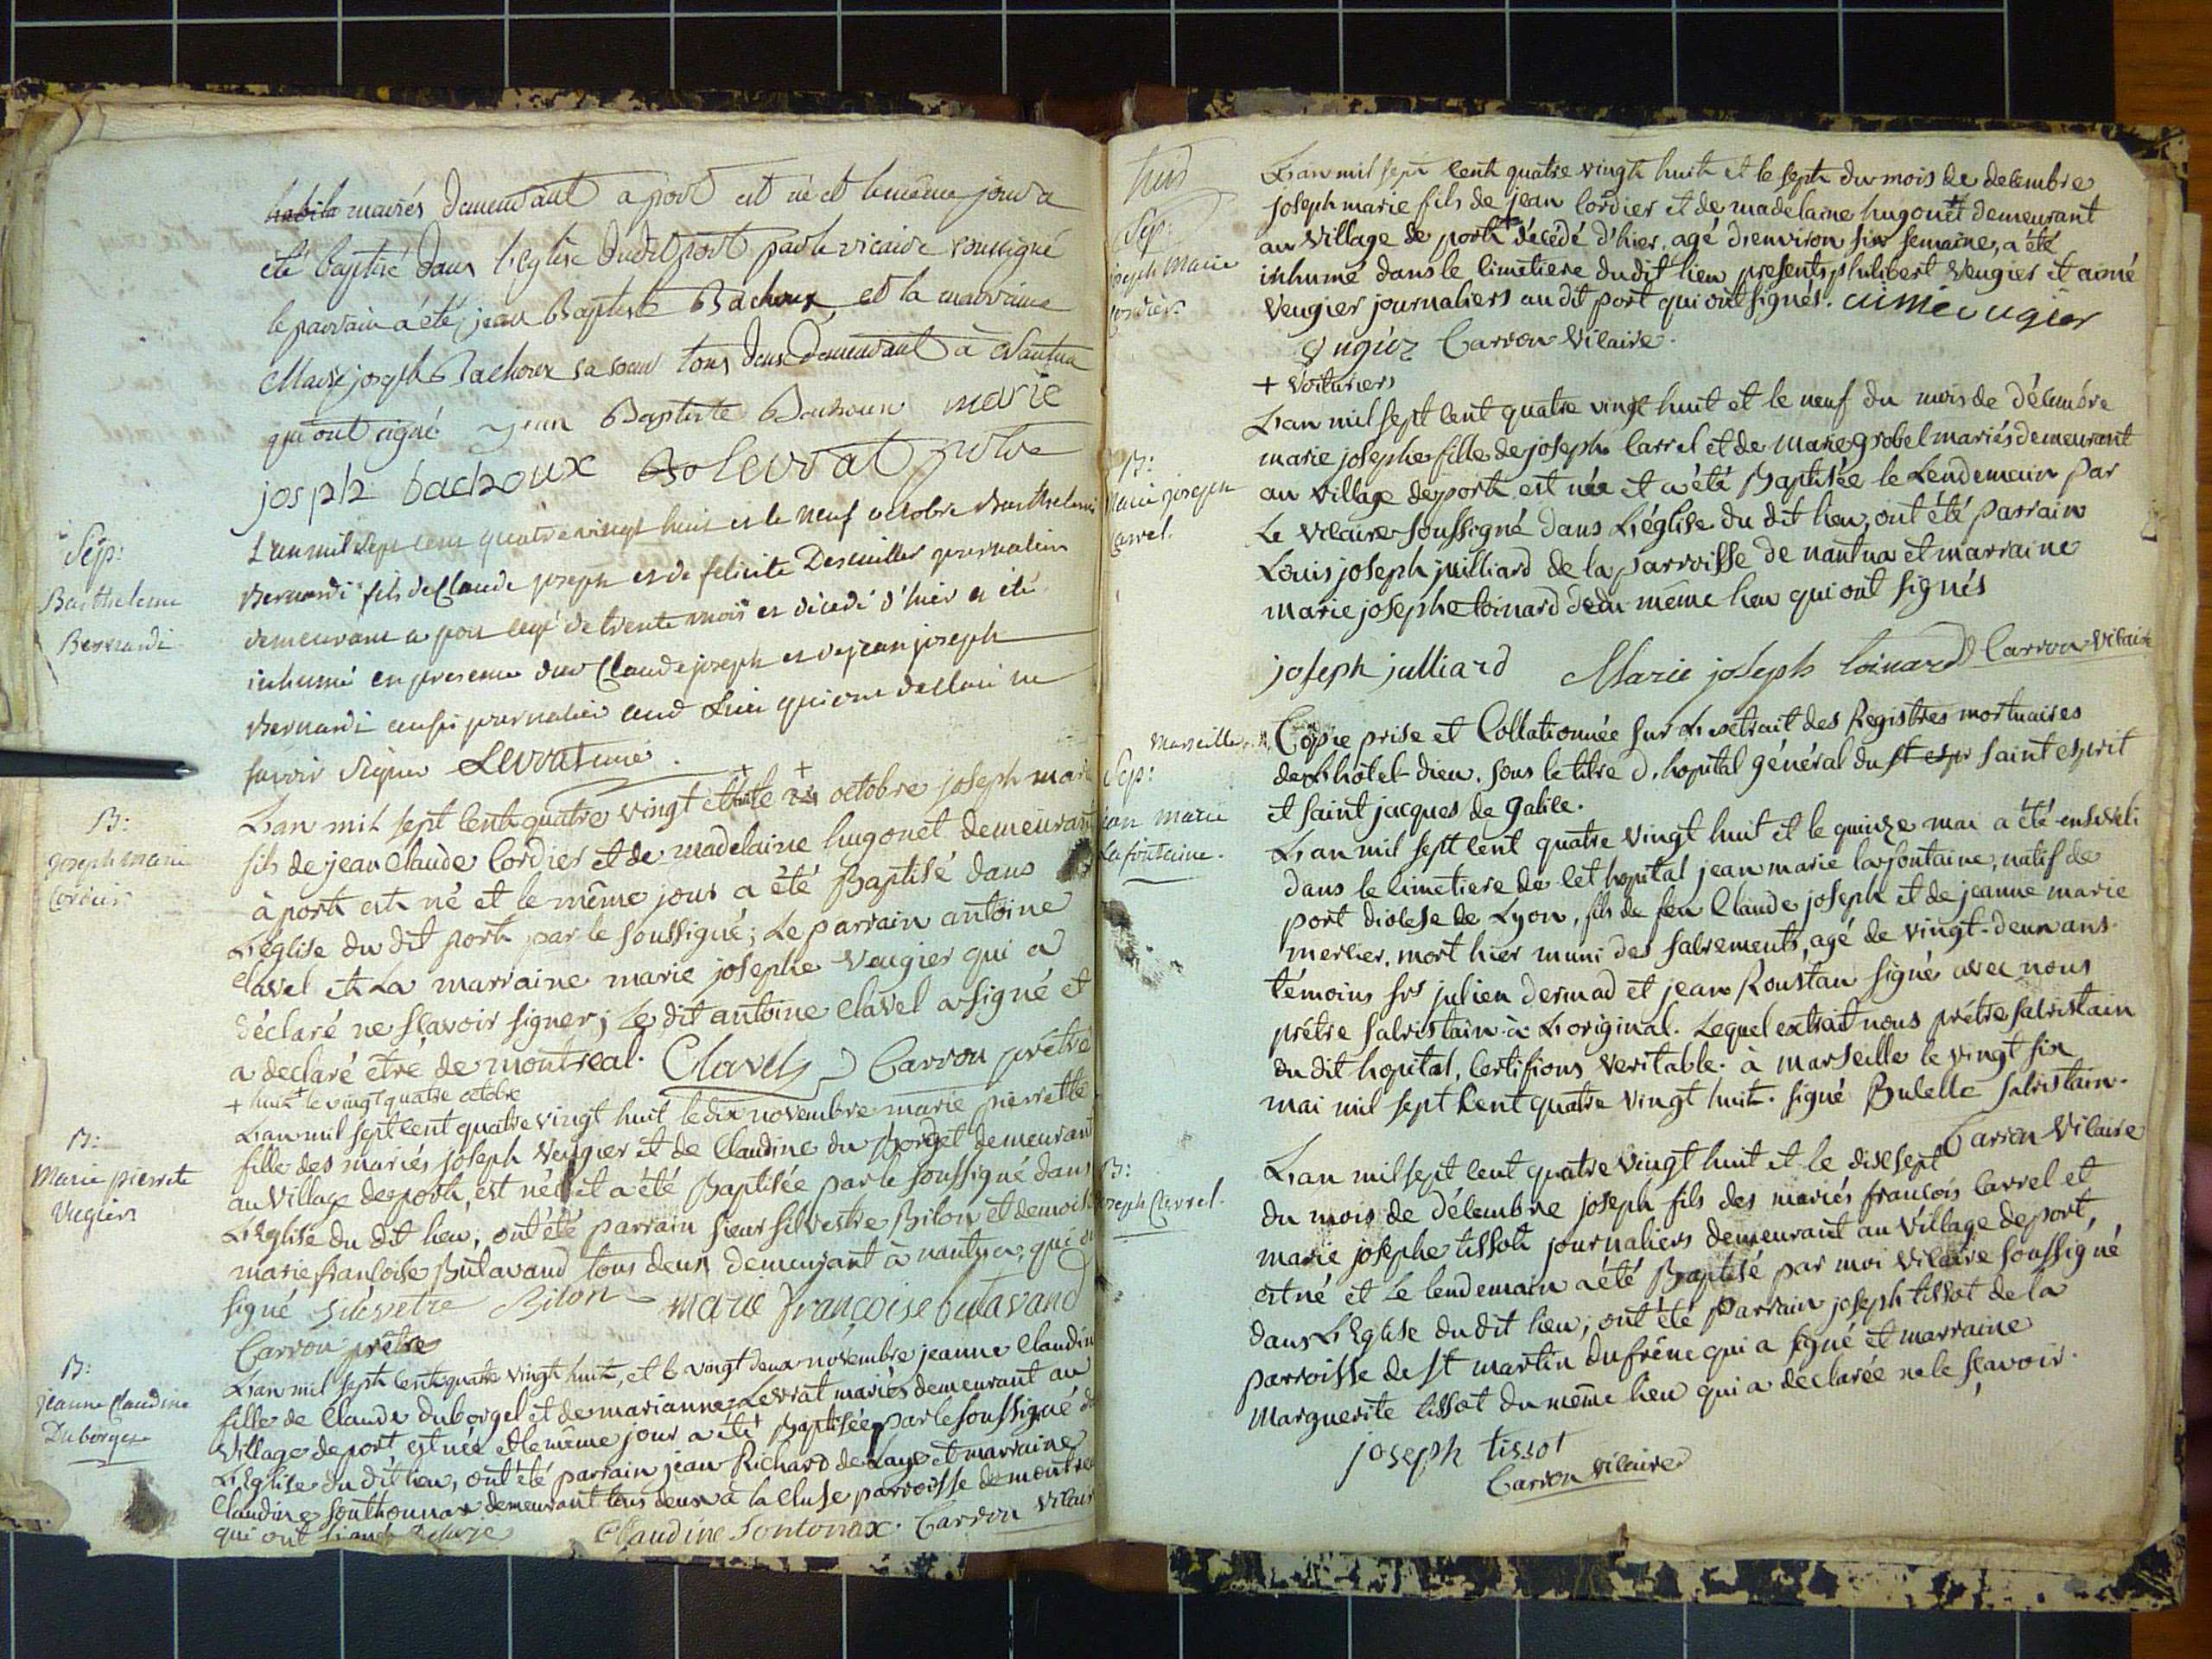 habita mariés demeurant a port est né et le même jour a
été baptisé dans l'eglise dudit port par le vicaire soussigné
le parrain a été jean Baptiste Bachoux et la marraine
Marie joseph Bachoux sa soeur tous deux demeurant à Nantua
qui ont signé jean Baptiste Bachoux marie
josph bachoux Bolevrat prêtre
Sép:
Barthelemi
Bernardi
L'an mil sept cent quatre vingt huit et le neuf octobre Barthelemi
Bernardi fils de Claude joseph et de felicite Desuiller journalier
demeurant a port agé de trente mois et décédé d'hier a été
inhumé en presence du Claude joseph et de jean joseph
Bernardi aussi journalier aud Lieu qui ont declaré ne
savoir signer Levrat curé
B:
joseph marie
Cordier
L'an mil sept cent quatre vingt et huit le 24 + + octobre joseph marie
fils de jean claude Cordier et de madelaine hugonet demeurant
à port est né et le même jour a été Baptisé dans
L'église du dit port par le soussigné; Le parrain antoine
Clavel et La marraine marie josephe Veugier qui a
déclaré ne scavoir signer; Le dit antoine Clavel a signé et
a declaré etre de montreal. Clavel Carron prêtre
+ huit + le vingt quatre octobre
B:
Marie pierrette
Vugier
L'an mil sept cent quatre vingt huit le dix novembre marie pierrette
fille des mariés joseph Veugier et de Claudine du Borget demeurant
au Village de port, est née et a été Baptisée par le soussigné dans
L'Eglise du dit lieu, ont été parrain sieur Silvestre Bilon et demoiselle
marie francoise Butavand tous deux demeurant à nantua, qui ont
signé Silvestre Bilon marie françoise butavand
Carron prêtre
B:
jeanne claudine
Duborgel
L'an mil sept cent quatre vingt huit, et le vingt deux novembre jeanne Claudine
fille de Claude Duborgel et de marianne Levrat mariés demeurant au
Village de port est née et le même jour a été Baptisée par le soussigné dans
L'Eglise du dit lieu, ont été parrain jean Richard de Laye et marraine
Claudine Southonnax demeurant tous deux à la Cluse parroisse de montreal
qui ont Claudine Sontonax. Carron Vicaire
Sép:
joseph Marie
Cordier
L'an mil sept cent quatre vingt huit et le sept du mois de decembre
joseph marie fils de jean Cordier et de madelaine hugonet demeurant
au Village de port + décédé d'hier, agé d'environ six semaine, a été
inhumé dans le cimetiere du dit lieu presents philibert Veugier et aimé
Veugier journaliers au dit port qui ont signés. aimé ugier
Vugier Carron Vicaire.
+ Voituriers
B:
Marie joseph
Carrel.
L'an mil sept cent quatre vingt huit et le neuf du mois de décembre
marie josephe fille de joseph Carrel et de Marie grobel mariés demeurant
au Village de port est née et a été Baptisée le Lendemain par
Le vicaire soussigné dans L'église du dit lieu, ont été parrain
Louis joseph juilliard de la parroisse de nantua et marraine
marie josephe Coinard du même lieu qui ont signés
joseph julliard Marie joseph Coinard Carron Vicaire
Marseille
Sep:
jean marie
Lafontaine.
Copie prise et Collationnée sur L'extrait des Registres mortuaires
de L'hôtel-dieu, sous le titre d'hopital général du st espr saint esprit
et saint jacques de galice.
L'an mil sept cent quatre vingt huit et le quinze mai a été enseveli
dans le cimetiere de cet hopital jean marie lafontaine, natif de
port diocese de Lyon, fils de feu Claude joseph et de jeanne marie
mercier, mort hier muni des sacrements, agé de vingt-deux ans.
témoins srs julien dermad et jean Roustan signé avec nous
prétre sacristain à L'original. Lequel extrait nous prétre sacristain
du dit hopital, certifions veritable. à marseille le vingt six
mai mil sept Cent quatre vingt huit. signé Bulelle sacristain.
Carron Vicaire
B:
joseph Carrel.
L'an mil sept cent quatre vingt huit et le dixsept
du mois de décembre joseph fils des mariés francois Carrel et
marie josephe tissot journaliers demeurant au Village de port,
est né et Le lendemain a été Baptisé par moi Vicaire soussigné
dans L'Eglise du dit lieu, ont été Parrain joseph tissot de la
parroisse de St martin du frêne qui a signé et marraine
Marguerite tissot du même lieu qui a declarée ne le scavoir.
joseph tissot
Carron vicaire